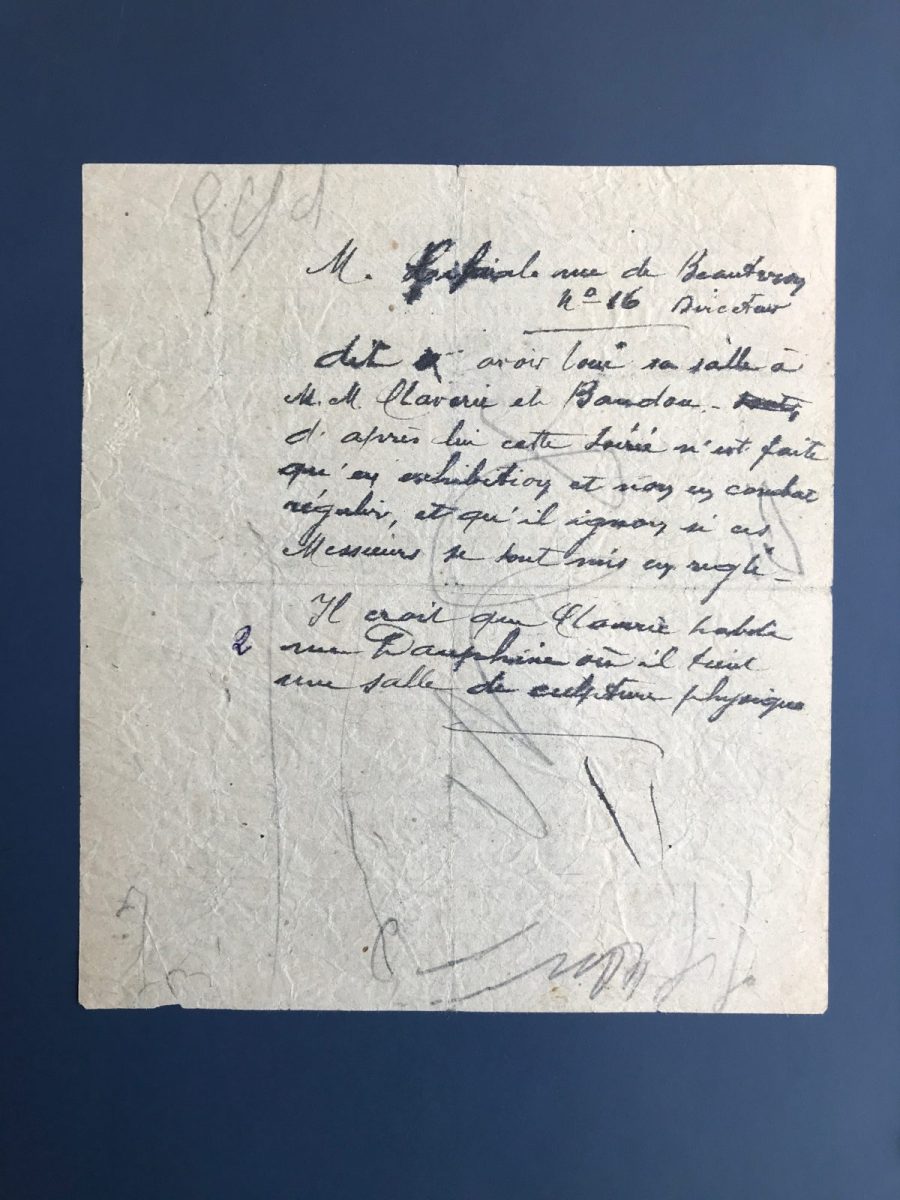 M. rue de
No 16 Directeur
dit avoir loué sa salle à
M.M. Claverie et Baudou.
d'après lui cette soirée n'est faite
qu'en exhibition et non en combat
régulier, et qu'il ignore si ces
Messieurs se sont mis en règle_
Il croit que Claverie habite
2 rue Dauphine où il tient
une salle de culture physique